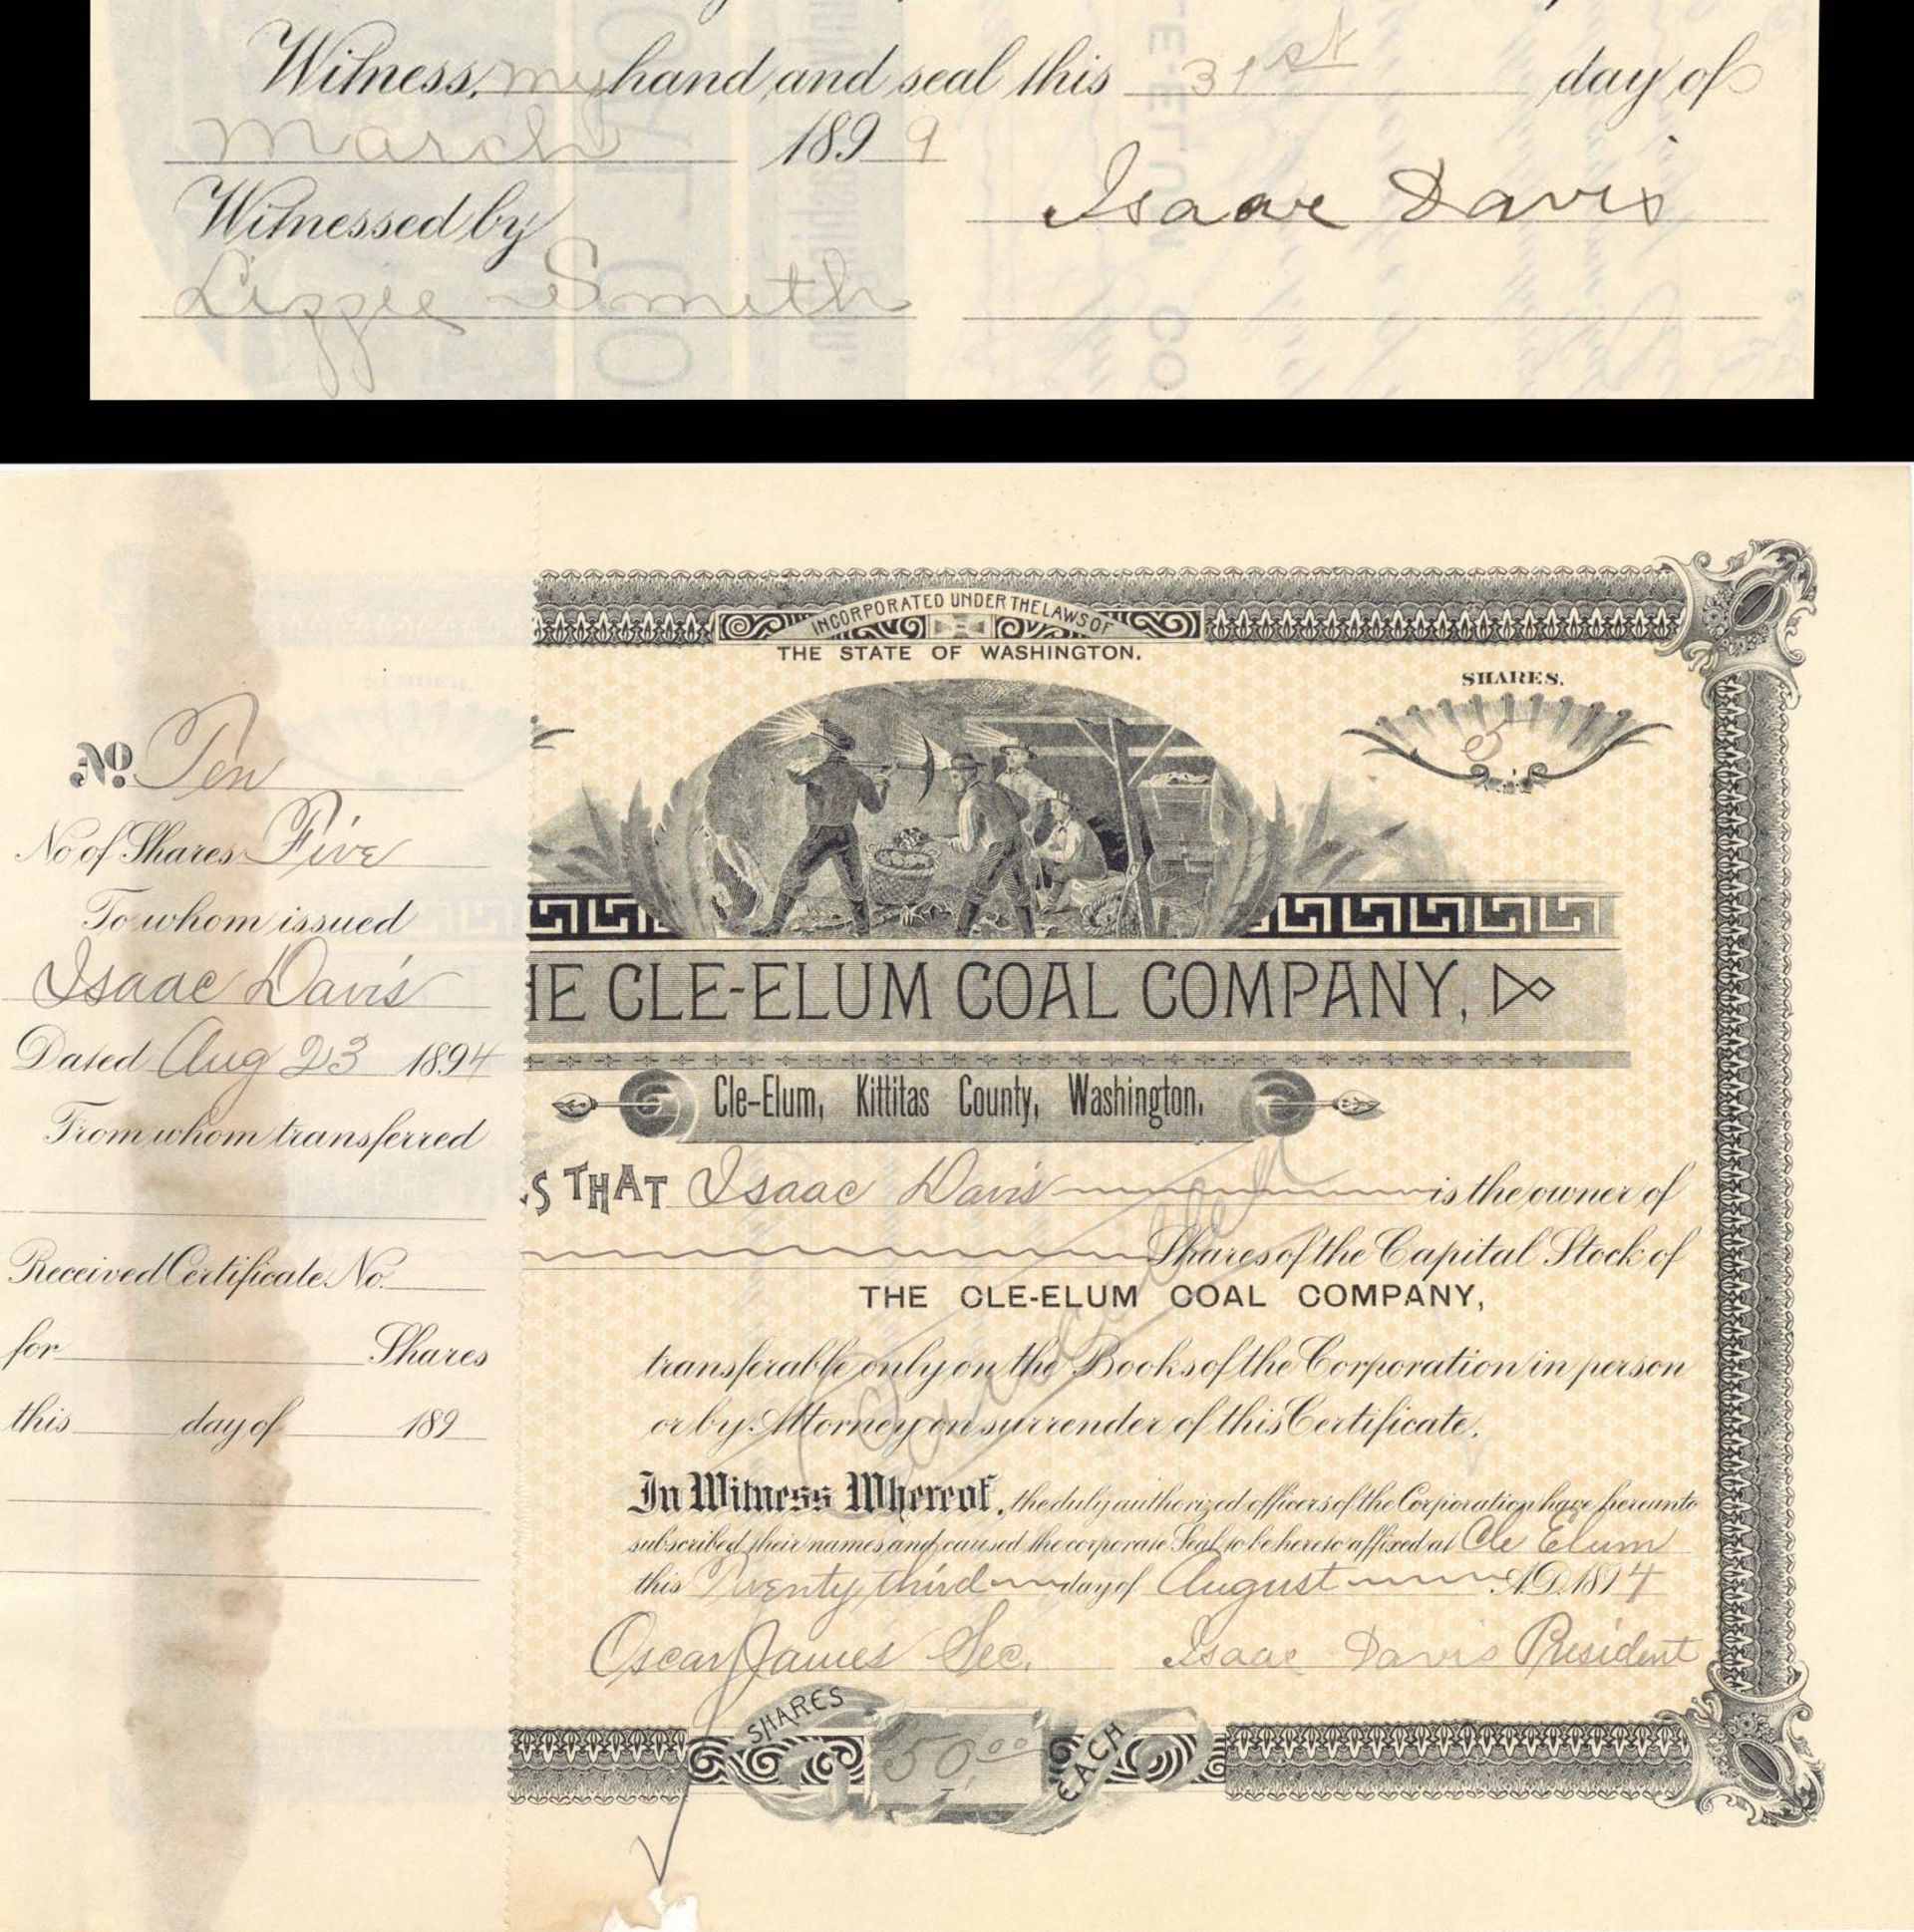 Witness, my hand and seal this 31st day of
March 1899
Isaac Davis
Witnessed by
Lizzie Smith
INCORPORATED UNDER THE LAWS OF
THE STATE OF WASHINGTON.
SHARES.
5
No. Ten
No of Shares Five
To whom issued
Isaac Davis
Dated Aug 23 1894
From whom transferred
Received Certificate No.
for Shares
this day of 189
HE CLE-ELUM COAL COMPANY,
Cle-Elum, Kittitas County, Washington.
S THAT Isaac Davis is the owner of
Shares of the Capital Stock of
THE CLE-ELUM COAL COMPANY,
transferable only on the Books of the Corporation in person
or by Attorney on surrender of this Certificate.
Cancelled
In Witness Whereof, the duly authorized officers of the Corporation have hereunto
subscribed their names and caused the corporate Seal to be hereto affixed at Cle Elum
this Twenty third day of August A.D. 1894
Oscar James Sec. Isaac Davis President
SHARES $50.00 EACH